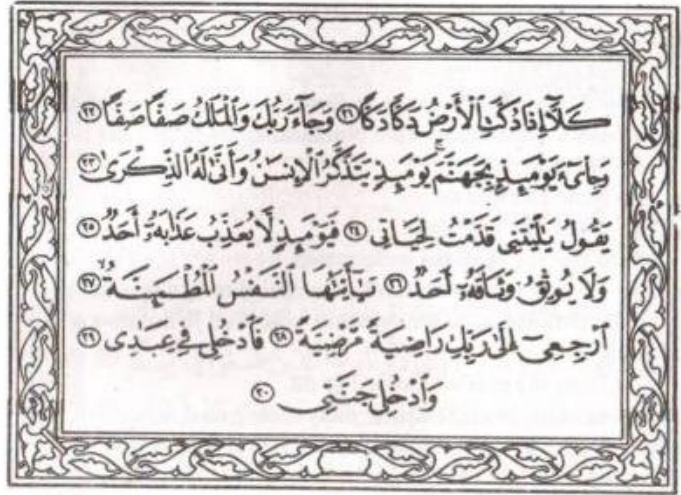 كَلَّآ إِذَا دُكَّتِ ٱلْأَرْضُ دَكًّا دَكًّا ٢١ وَجَآءَ رَبُّكَ وَٱلْمَلَكُ صَفًّا صَفًّا ٢٢
وَجِا۟ىٓءَ يَوْمَئِذٍۭ بِجَهَنَّمَ ۚ يَوْمَئِذٍ يَتَذَكَّرُ ٱلْإِنسَٰنُ وَأَنَّىٰ لَهُ ٱلذِّكْرَىٰ ٢٣
يَقُولُ يَٰلَيْتَنِى قَدَّمْتُ لِحَيَاتِى ٢٤ فَيَوْمَئِذٍ لَّا يُعَذِّبُ عَذَابَهُۥٓ أَحَدٌ ٢٥
وَلَا يُوثِقُ وَثَاقَهُۥٓ أَحَدٌ ٢٦ يَٰٓأَيَّتُهَا ٱلنَّفْسُ ٱلْمُطْمَئِنَّةُ ٢٧
ٱرْجِعِىٓ إِلَىٰ رَبِّكِ رَاضِيَةً مَّرْضِيَّةً ٢٨ فَٱدْخُلِى فِى عِبَٰدِى ٢٩
وَٱدْخُلِى جَنَّتِى ٣٠